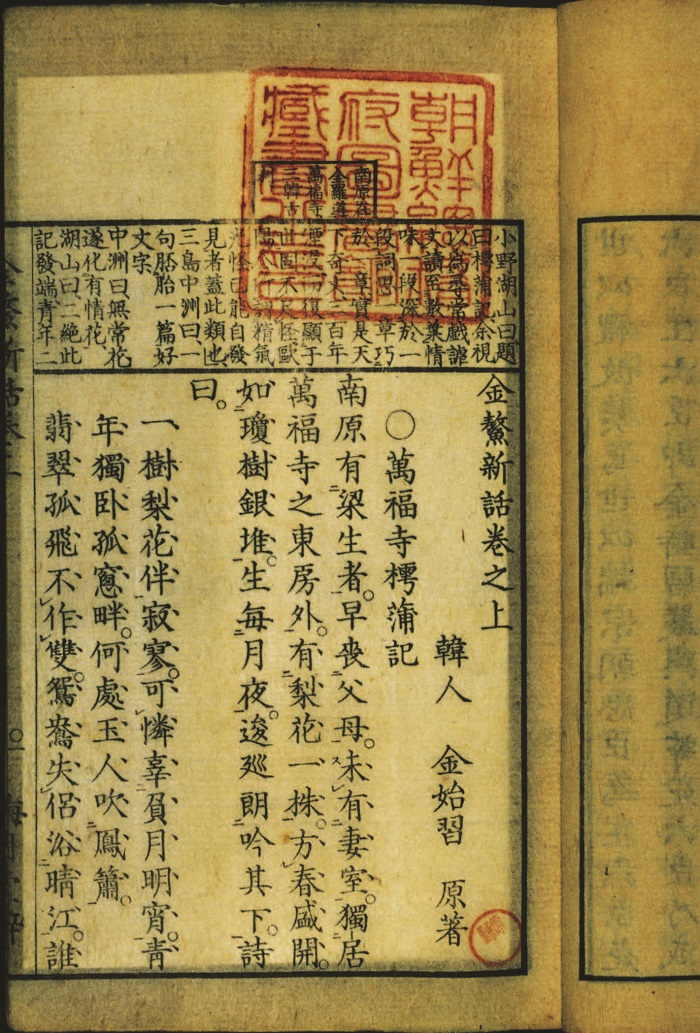 金鰲新話卷之上
韓人 金始習 原著
〇萬福寺樗蒲記
南原有梁生者。早喪父母。未有妻室。獨居
萬福寺之東房外。有梨花一株。方春盛開。
如瓊樹銀堆。生每月夜。逡巡朗吟其下。詩
曰。
一樹梨花伴寂寥。可憐辜負月明宵。靑
年獨卧孤窓畔。何處玉人吹鳳簫。
翡翠孤飛不作雙。鴛鴦失侶浴晴江。誰
小野湖山曰題
曰樗蒲記余視
以爲尋常戲謔
文讀至數葉情
味一段深於一
段詞思 章巧
於 章實是天
下奇文 二百年
湮没 而復顯于
世固不足怪歐
見者蓋此類也
三島中洲曰一
句胚胎一篇好
文字
中洲曰無常花
遂化有情花
湖山曰二絶此
記發端靑年二
南原在
全羅道
萬福寺
三韓古
朝鮮總督
府圖書館
藏書之印